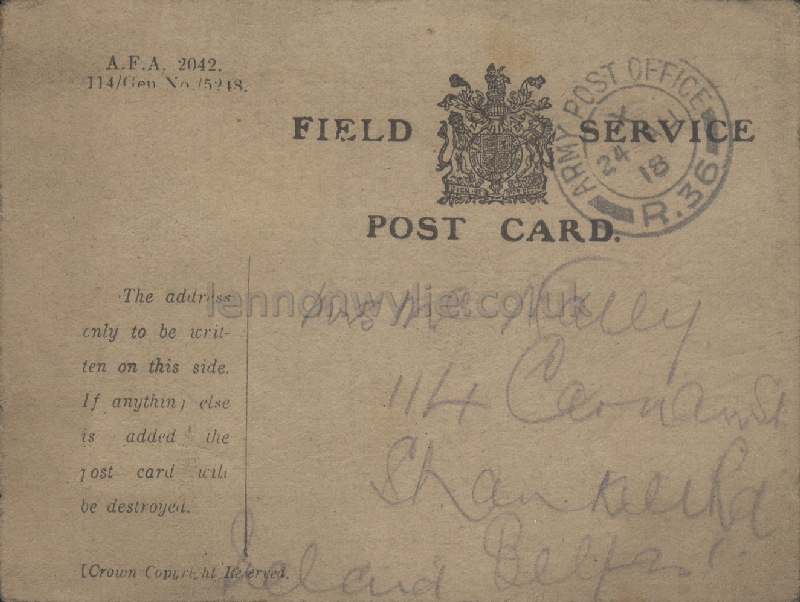 A.F.A. 2042.
114/Gen No./5248.
FIELD SERVICE
POST CARD.
ARMY POST OFFICE
X
24
18
R.36
The address
only to be writ-
ten on this side.
If anything else
is added the
post card will
be destroyed.
[Crown Copyright Reserved.
lennonwylie.co.uk
Mrs
114 Carnan St
Shankill Rd
Ireland Belfast